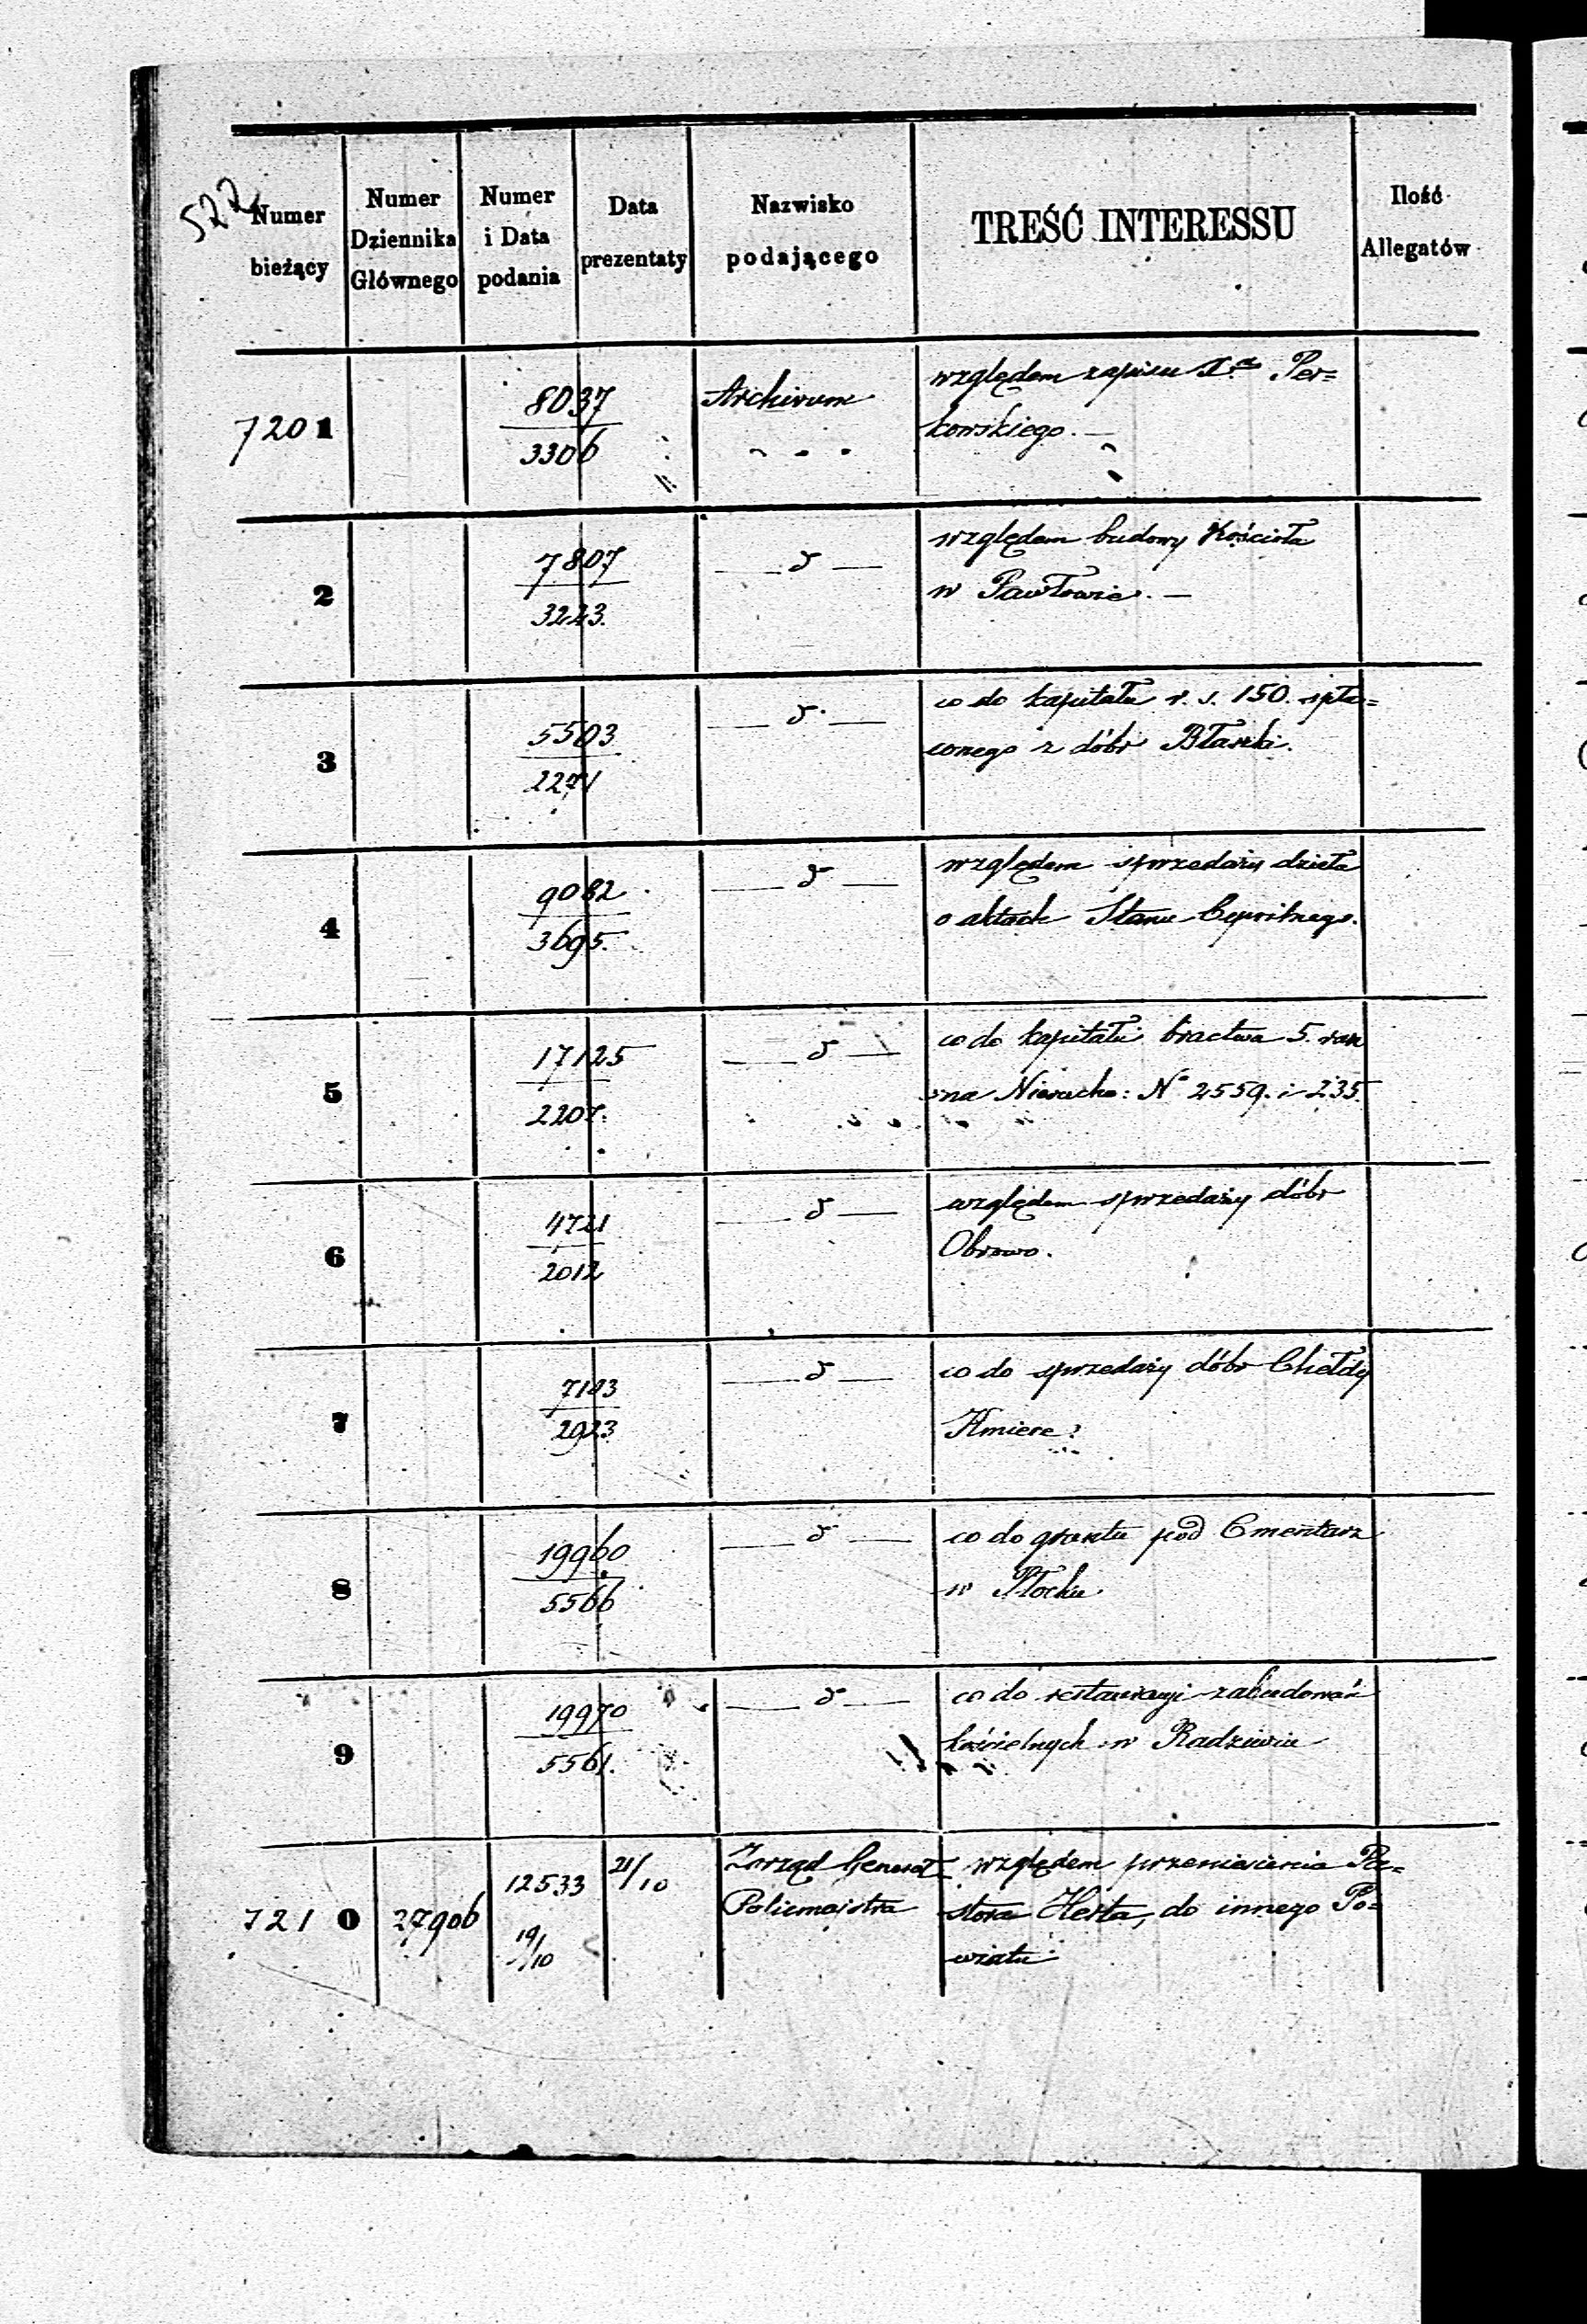 522
Numer bieżący
Numer Dziennika Głównego
Numer i Data podania
Data prezentaty
Nazwisko podającego
TREŚĆ INTERESSU
Ilość Allegatów
7201
8037
3306
Archivum
względem zapisu X.a Per=
kowskiego. —
2
7807
3223.
— d —
względem budowy Kościoła
w Pawłowie. —
3
5503
2271
— d. —
co do kapitału r. s. 150. spła=
conego z dóbr Błaszki.
4
9082
3695.
— d —
względem sprzedaży dzieła
o aktach Stanu Cywilnego.
5
17125
2207.
— d —
co do kapitału bractwa 5. ran
na Nierucho: No 2559. i 235.
6
4721
2012
— d —
względem sprzedaży dóbr
Obrowo.
7
7103
2923
— d —
co do sprzedaży dóbr Chełdy
8
19960
5566
— d —
co do gruntu pod Cmentarz
w Płocku
9
19970
5561.
— d —
co do restauracyi zabudowań
kościelnych w Radziwiu
7210
27906
12533
19/10
21/10
Zarząd Generał
Policmajstra
względem przeniesienia Pa=
stora Herta, do innego Po=
wiatu